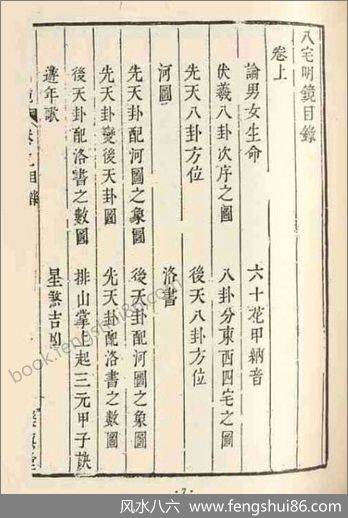 八宅明鏡目錄
卷上
論男女生命　六十花甲納音
伏羲八卦次序之圖　八卦分東西四宅之圖
先天八卦方位　後天八卦方位
河圖　洛書
先天卦配河圖之象圖　後天卦配河圖之象圖
先天卦變後天卦圖　先天卦配洛書之數圖
後天卦配洛書之數圖　排山掌上起三元甲子訣
遊年歌　星煞吉凶
·7·
book.fengshui86.com
风水八六 www.fengshui86.com